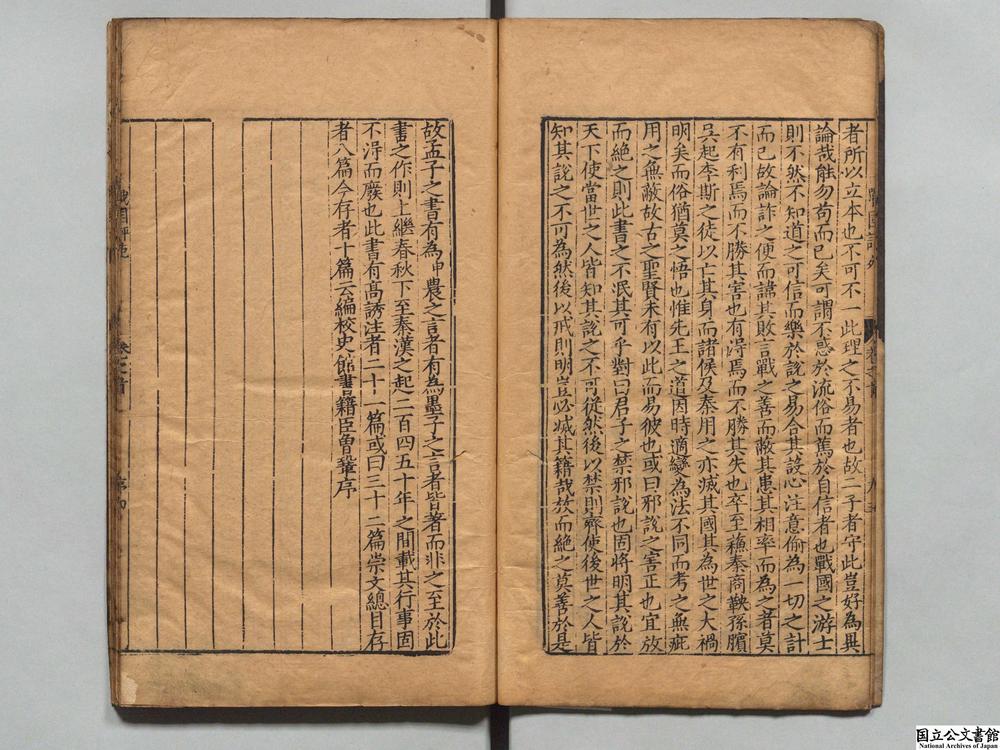 者所以立本也不可不一此理之不易者也故二子者守此豈好為異
論哉能勿苟而已矣可謂不惑於流俗而篤於自信者也戰國之游士
則不然不知道之可信而樂於說之易合其設心注意偷為一切之計
而已故論詐之便而諱其敗言戰之善而蔽其患其相率而為之者莫
不有利焉而不勝其害也有得焉而不勝其失也卒至蘇秦商鞅孫臏
吳起李斯之徒以亡其身而諸侯及秦用之亦滅其國其為世之大禍
明矣而俗猶莫之悟也惟先王之道因時適變為法不同而考之無疵
用之無敝故古之聖賢未有以此而易彼也或曰邪說之害正也宜放
而絕之則此書之不泯其可乎對曰君子之禁邪說也固將明其說於
天下使當世之人皆知其說之不可從然後以禁則齊使後世之人皆
知其說之不可為然後以戒則明豈必滅其籍哉放而絕之莫善於是
故孟子之書有為神農之言者有為墨子之言者皆著而非之至於此
書之作則上繼春秋下至秦漢之起二百四五十年之間載其行事固
不得而廢也此書有高誘注者二十一篇或曰三十二篇崇文總目存
者八篇今存者十篇云編校史館書籍臣曾鞏序
国立公文書館
National Archives of Japan